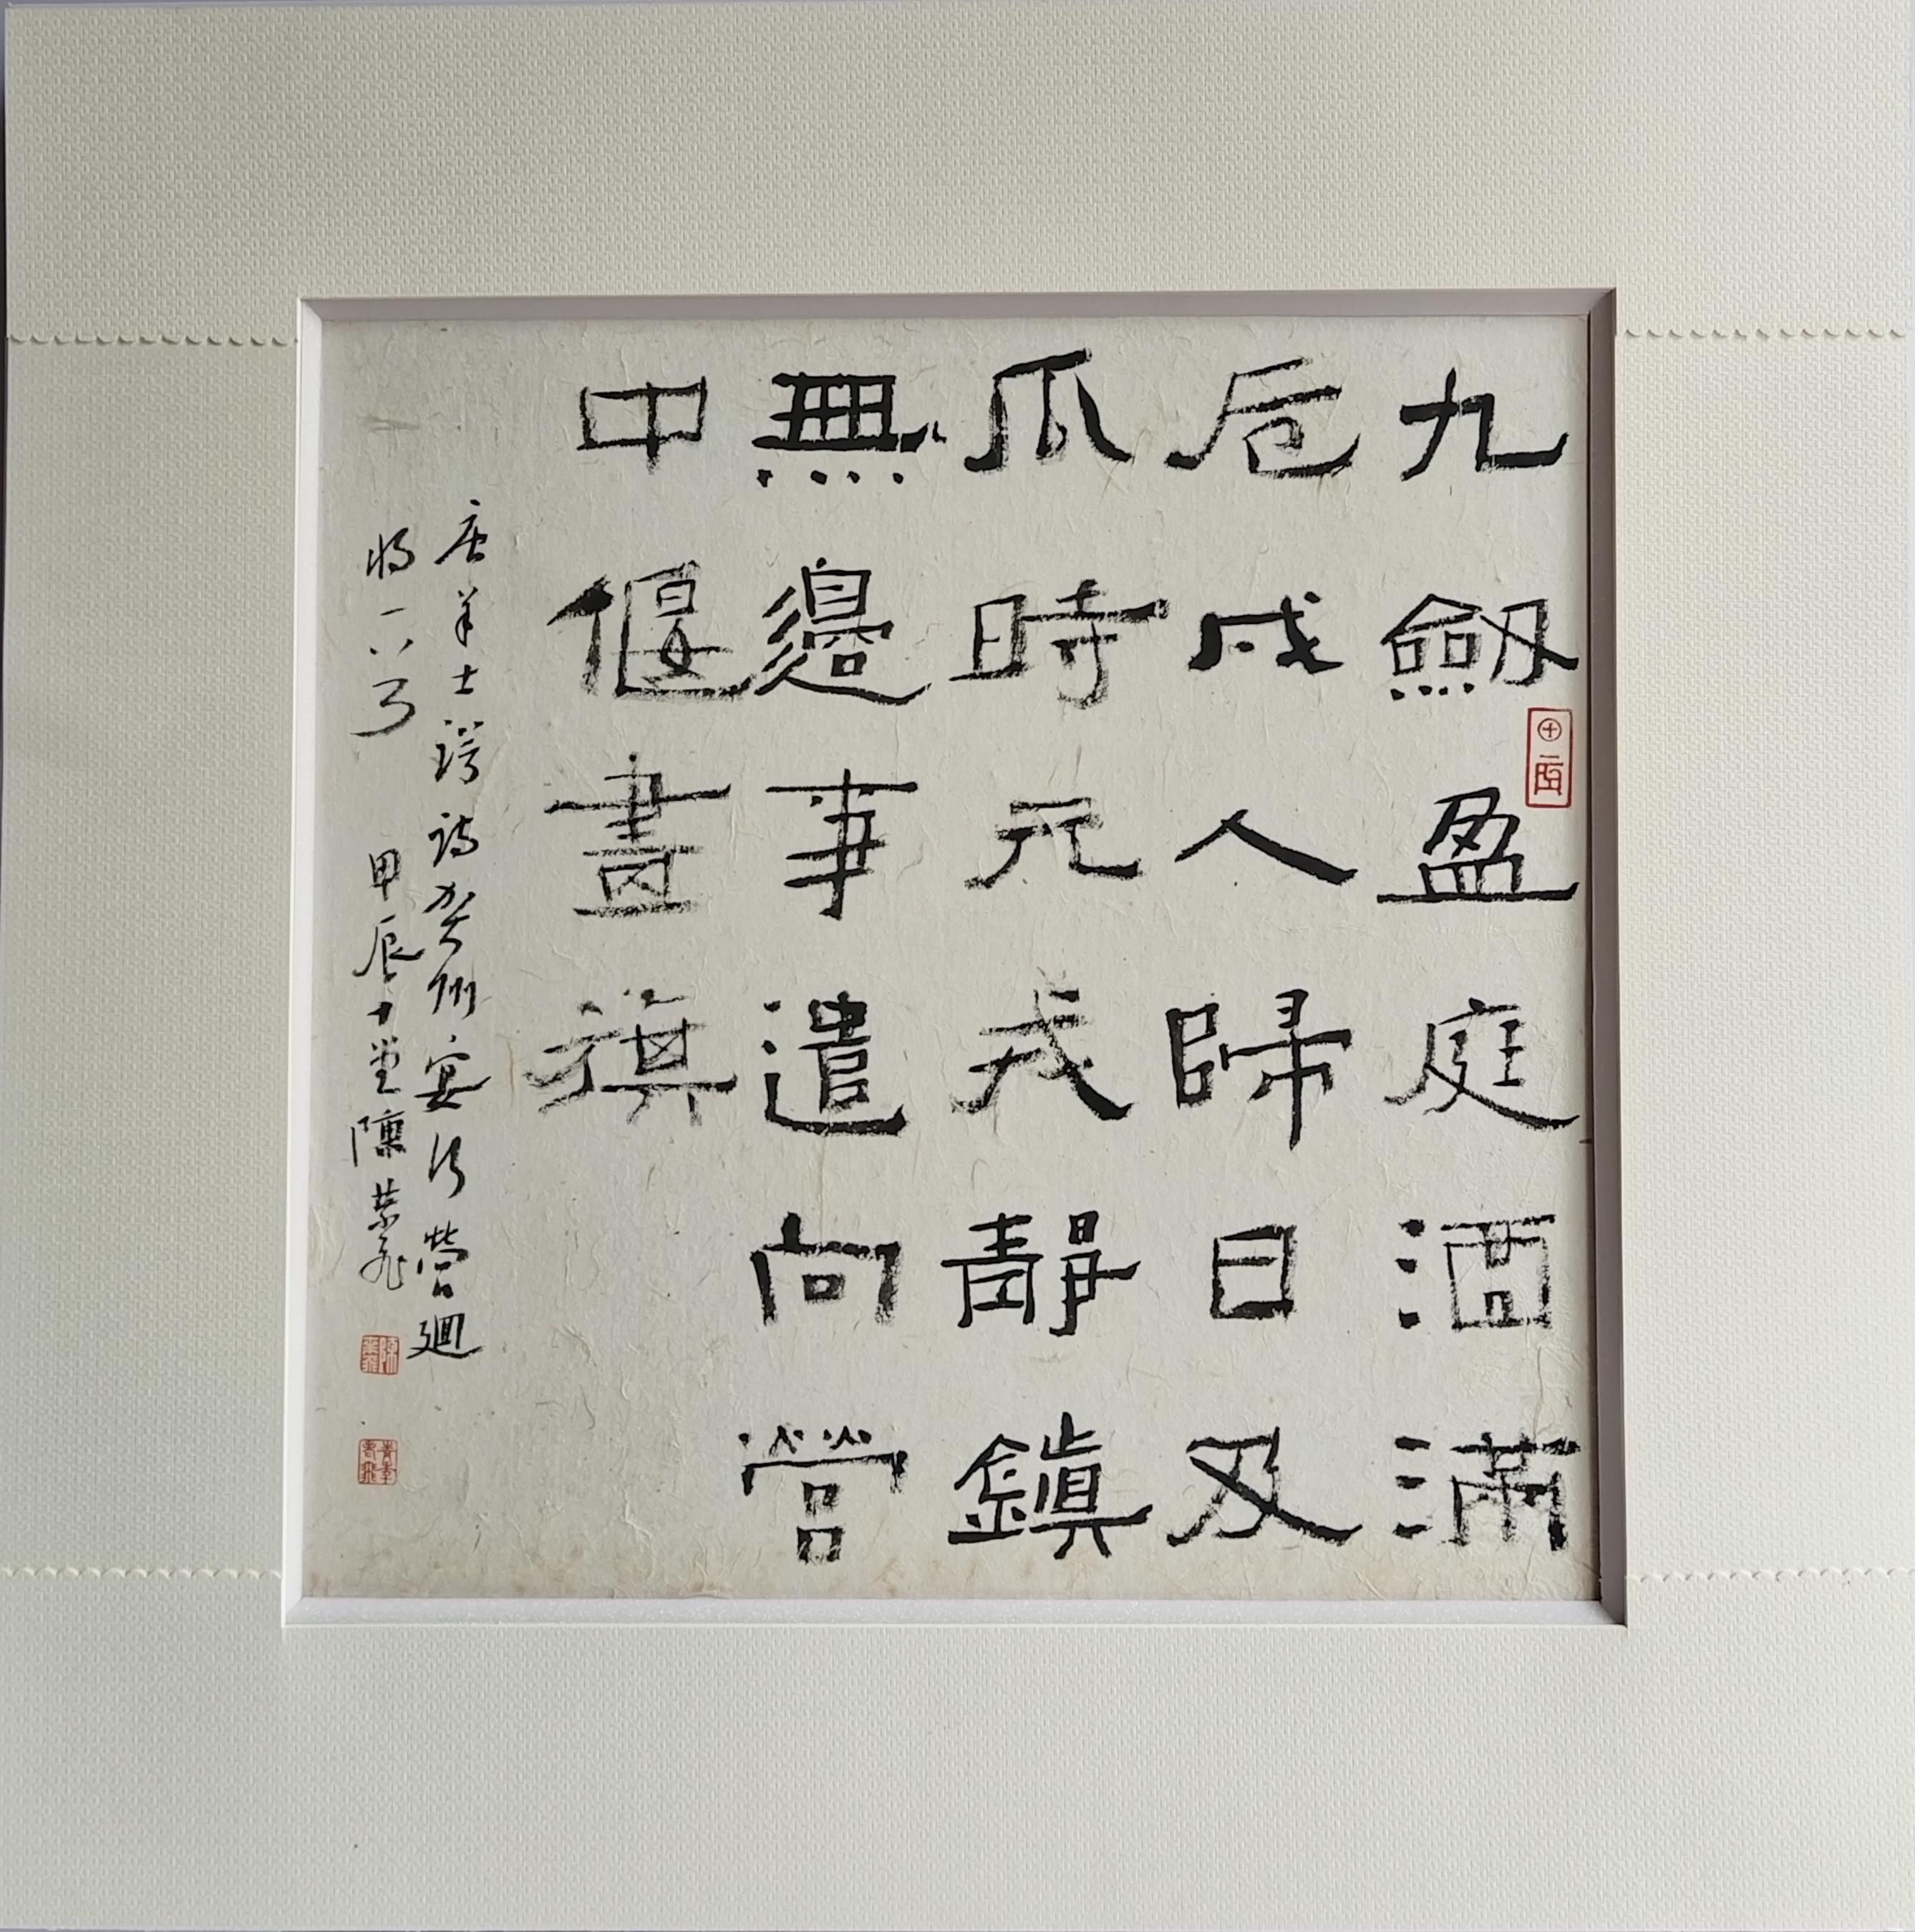 九劒盈庭酒滿
卮戍人歸日及
瓜時元戎靜鎮
無邊事遣向營
中偃畫旗
唐羊士諤詩賀州宴行營迴
將一首 甲辰 陳